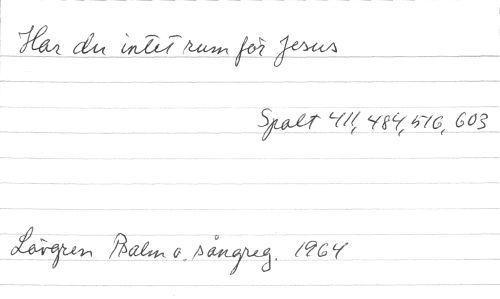 Har du intet rum för Jesus
Spalt 411, 484, 516, 603
Lövgren Psalm o. sångreg. 1964